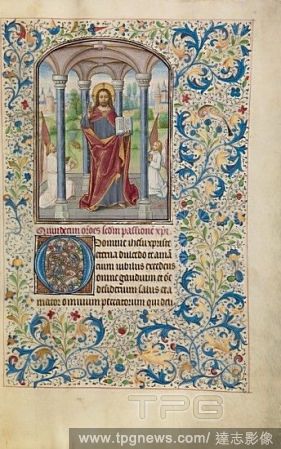 Quindecim orões sedm passionē xpi
O Domine ihesu xpriste
eterna dulcedo et amā
cium iubilus excedens
omne gaudium et oē
desiderium salus et a
mator omnium peccatorum qui deli
TPG
www.tpgnews.com/達志影像